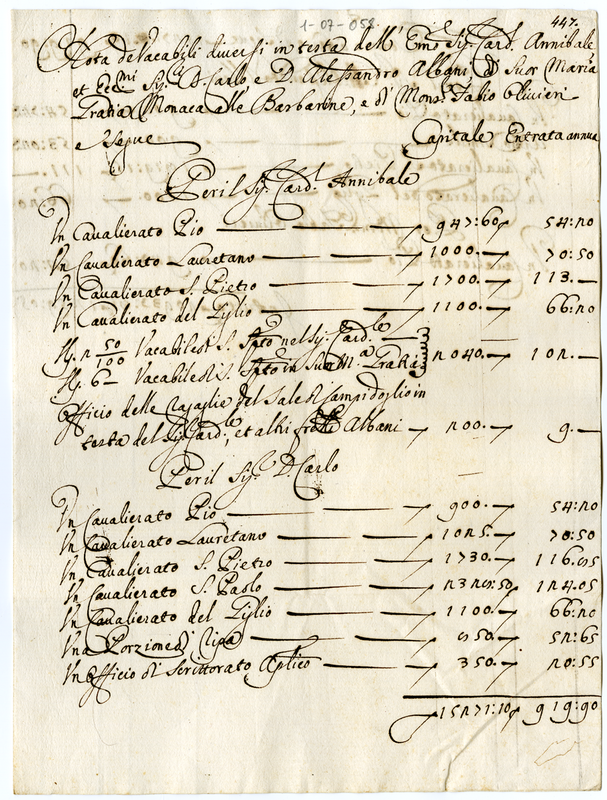 1-07-058
447.
Nota de Vacabili diversi in testa dell' Emo Sig. Card. Annibale
et Eccmi Sigri D. Carlo e D. Alessandro Albani, di Suor Maria
Gratia Monaca alle Barbarine, e di Monsr Fabio Olivieri
e segue Capitale Entrata annua
Per il Sig. Card. Annibale
Un Cavalierato Pio — 947:60 54:20
Un Cavalierato Lauretano — 1000. 70:50
Un Cavalierato S. Pietro — 1700. 113.—
Un Cavalierato del Giglio — 1100. 66:20
n 50/100 Vacabile S. nel Sig. Cardle
6— Vacabile S. in Suor Ma Gratia 2040. 102.—
Officio delle del Sale di Campidoglio in
testa del Sig. Cardle, et altri frelli Albani — 200. 9.—
Per il Sigr D. Carlo
Un Cavalierato Pio — 900. 54:20
Un Cavalierato Lauretano — 1025. 70:50
Un Cavalierato S. Pietro — 1730. 116.85
Un Cavalierato S. Paolo — 2328:50 124.05
Un Cavalierato del Giglio — 1100. 66:20
Una Porzione di Ripa — 850. 52:65
Un Officio di Scrittorato Aplico — 350. 20:55
15271:10 919:90